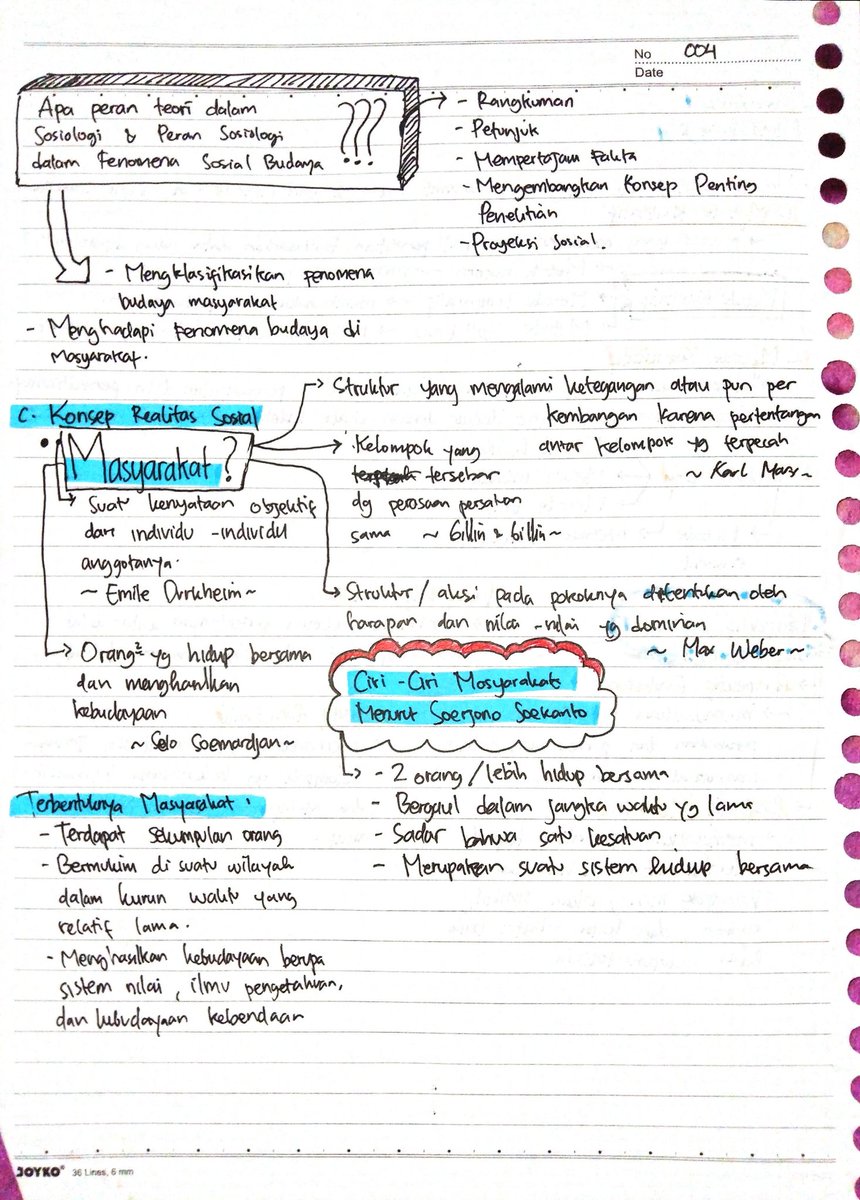 No 004
Date
Apa peran teori dalam
Sosiologi & Peran Sosiologi
dalam Fenomena Sosial Budaya
???
- Rangkuman
- Petunjuk
- Mempertajam Fakta
- Mengembangkan Konsep Penting
Penelitian
- Proyeksi Sosial.
- Mengklasifikasikan fenomena
budaya masyarakat
- Menghadapi Fenomena budaya di
Masyarakat.
C. Konsep Realitas Sosial
Masyarakat?
Struktur yang mengalami ketegangan atau pun per
kembangan karena pertentangan
antar kelompok yg terpecah
~ Karl Marx ~
Kelompok yang
tersebar
dg perasaan persatuan
sama ~ Gillin & Gillin ~
Suatu kenyataan objektif
dari individu - individu
anggotanya.
~ Emile Durkheim ~
Struktur / aksi pada pokoknya ditentukan oleh
harapan dan nilai - nilai yg dominan
~ Max Weber ~
Orang² yg hidup bersama
dan menghasilkan
kebudayaan
~ Selo Soemardjan ~
Ciri - Ciri Masyarakat
Menurut Soerjono Soekanto
- 2 orang / lebih hidup bersama
- Bergaul dalam jangka waktu yg lama
- Sadar bahwa satu kesatuan
- Merupakan suatu sistem hidup bersama
Terbentuknya Masyarakat :
- Terdapat sekumpulan orang
- Bermukim di suatu wilayah
dalam kurun waktu yang
relatif lama.
- Menghasilkan kebudayaan berupa
sistem nilai, ilmu pengetahuan,
dan kebudayaan kebendaan
JOYKO 36 Lines, 6 mm